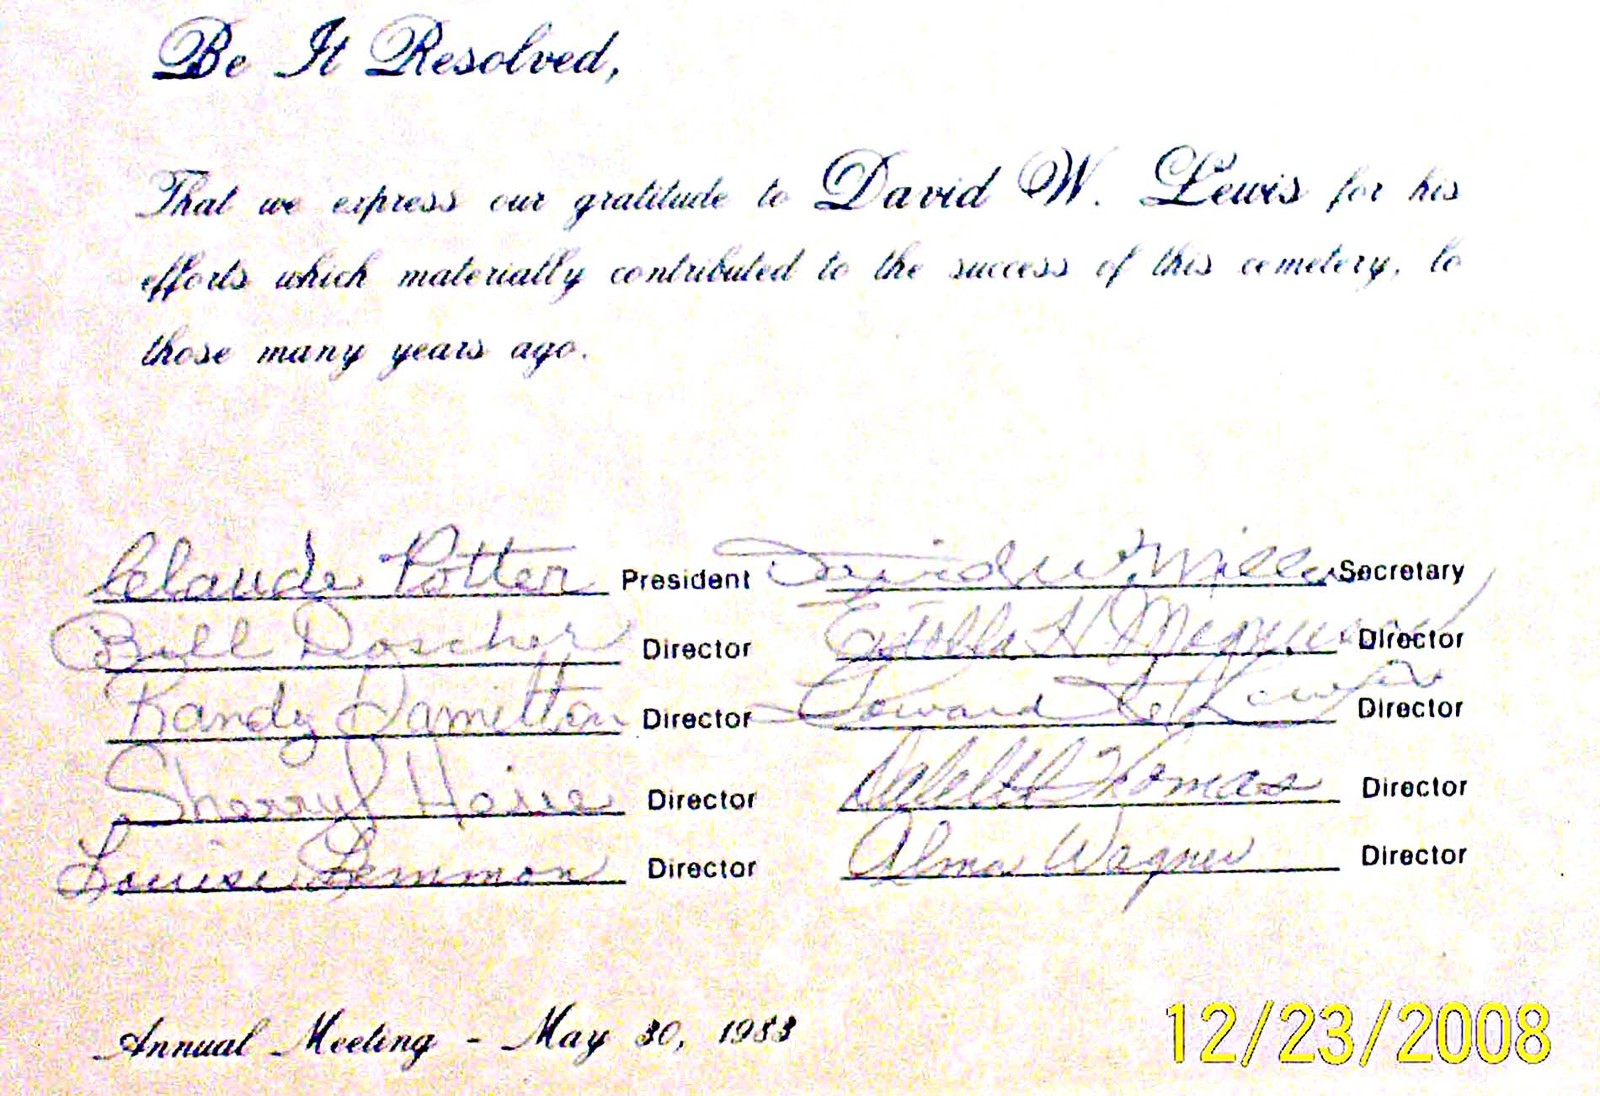 Be It Resolved,
That we express our gratitude to David W. Lewis for his
efforts which materially contributed to the success of this cemetery, lo
those many years ago.
Claude Potter President David W. Miller Secretary
Bill Doscher Director Estella H Director
Randy Hamilton Director Howard Director
Sherryl Heise Director Thomas Director
Louise Lemmon Director Alma Wagner Director
Annual Meeting - May 30, 1983
12/23/2008